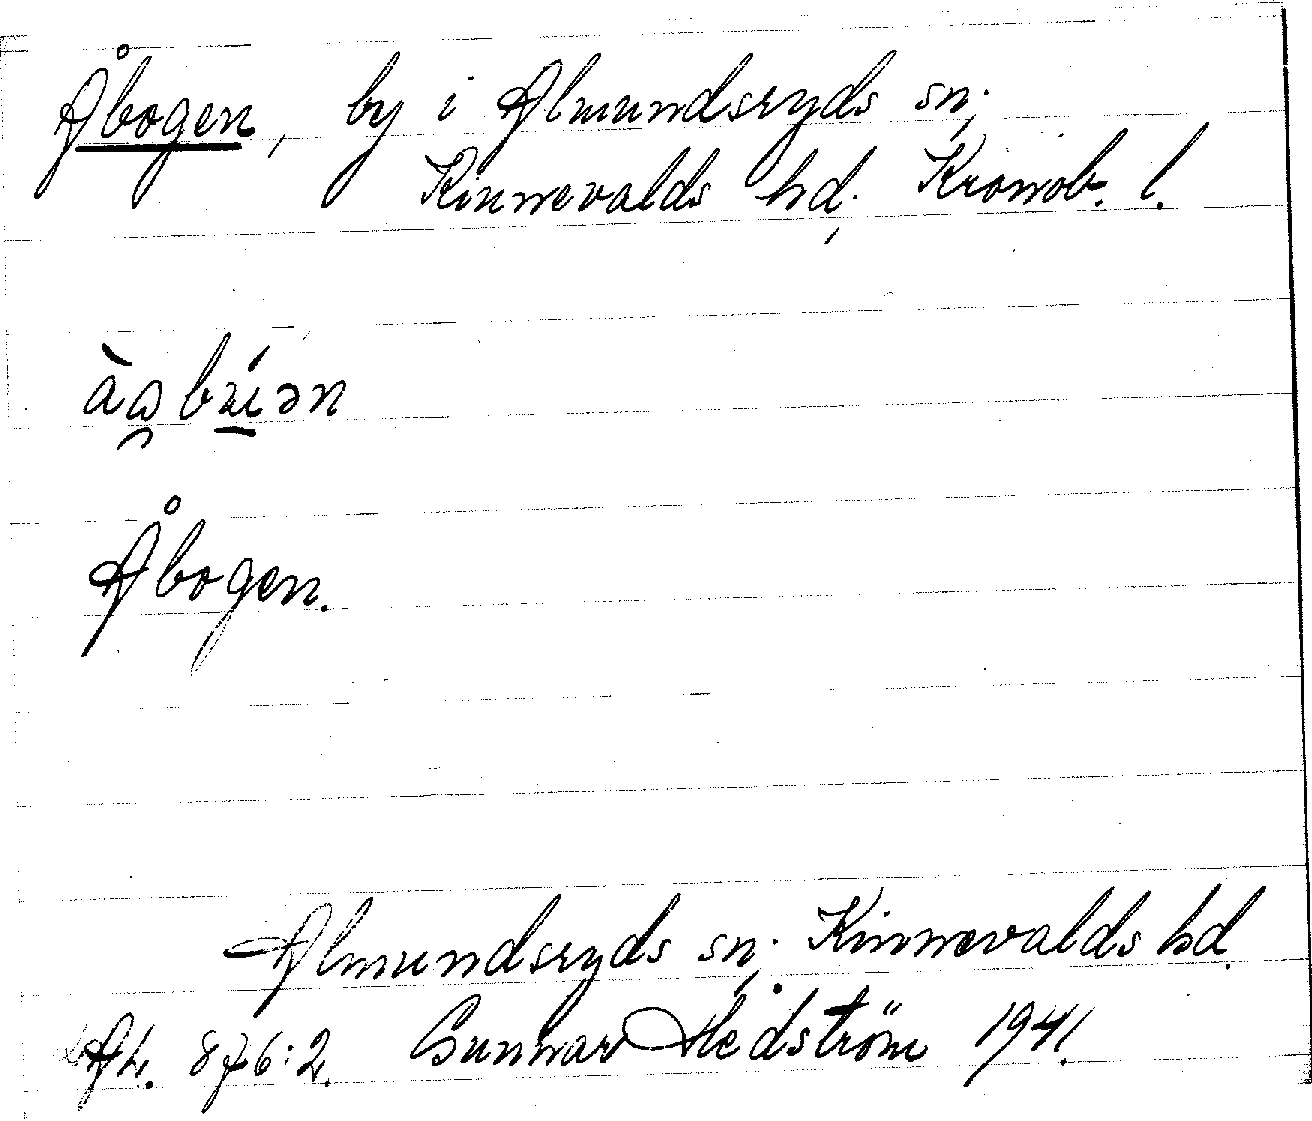 Åbogen, by i Almundsryds sn;
Kinnevalds hd; Kronob. l.
Åbogen.
Almundsryds sn; Kinnevalds hd.
876:2. Gunnar Hedström 1941.